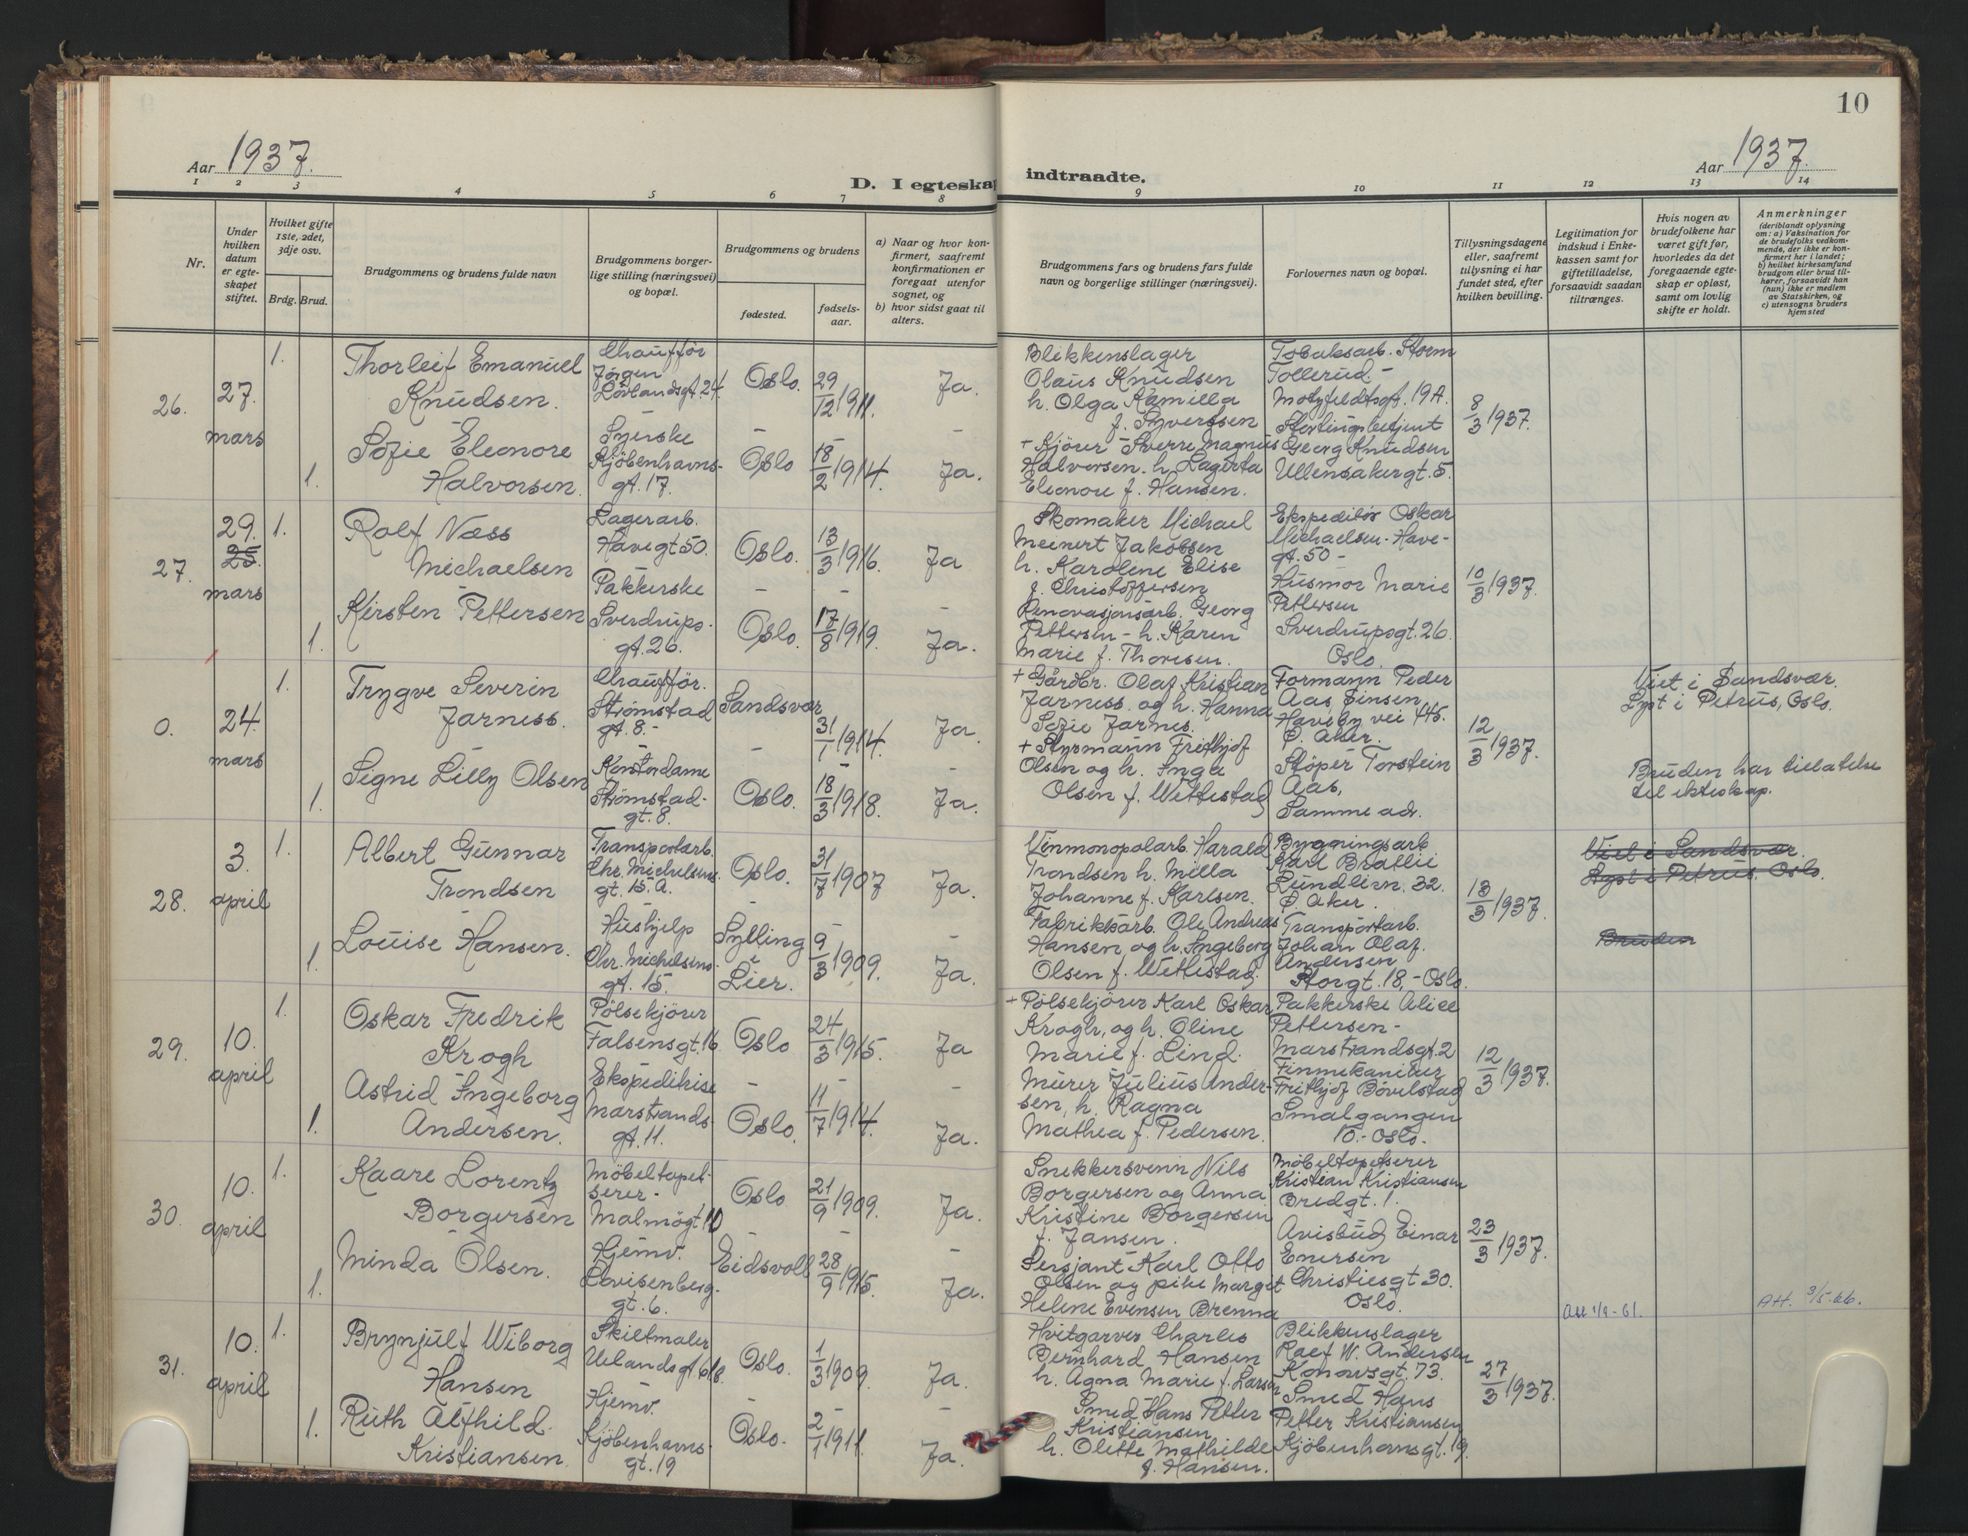 10
Aar 1937.
D. I egteskap indtraadte.
Aar 1937.
1 2 3 4 5 6 7 8 9 10 11 12 13 14
Nr.
Under hvilken datum er egteskapet stiftet.
Hvilket gifte 1ste, 2det, 3dje osv.
Brdg. Brud.
Brudgommens og brudens fulde navn
Brudgommens borgerlige stilling (næringsvei) og bopæl.
Brudgommens og brudens
fødested.
fødselsaar.
a) Naar og hvor konfirmert, saafremt konfirmationen er foregaat utenfor sognet, og
b) hvor sidst gaat til alters.
Brudgommens fars og brudens fars fulde navn og borgerlige stillinger (næringsvei).
Forlovernes navn og bopæl.
Tillysningsdagene eller, saafremt tillysning ei har fundet sted, efter hvilken bevilling.
Legitimation for indskud i Enkekassen samt for giftetilladelse, forsaavidt saadan tiltrænges.
Hvis nogen av brudefolkene har været gift før, hvorledes da det foregaaende egteskap er opløst, samt om lovlig skifte er holdt.
Anmerkninger
(deriblandt oplysning om: a) Vaksination for de brudefolks vedkommende, der ikke er konfirmert her i landet; b) hvilket kirkesamfund brudgom eller brud tilhører, forsaavidt han (hun) ikke er medlem av Statskirken, og c) utensogns bruders hjemsted
26.
27. mars
1.
Thorleif Emanuel
Knudsen.
Chauffør
Jørgen
Løvlandsgt. 24.
Oslo.
29/12 1911.
Ja.
1.
Sofie Eleonore
Halvorsen.
Syerske
Kjøbenhavns-
gt. 17.
Oslo
18/2 1914.
Ja.
Blikkenslager
Olaus Knudsen
h. Olga Kamilla
f. Syvertsen
+ Kjører Sverre Magnus
Halvorsen. h. Lagerta
Eleonore f. Hansen.
Tobaksarb. Storm
Tollerud -
Motzfeldtsgt. 19A.
Stortingsbetjent
Georg Knudsen
Ullensakergt. 5.
8/3 1937.
27.
29.
25.
mars
1.
Rolf Næss
Michaelsen
Lagerarb.
Havegt 50.
Oslo.
13/3 1916.
Ja
1.
Kirsten Pettersen
Pakkerske
Sverdrups-
gt. 26.
Oslo.
17/8 1919.
Ja.
Skomaker Michael
Meinert Jakobsen
h. Karoline Elise
f. Christoffersen
Renovasjonsarb. Georg
Pettersen - h. Karen
Marie f. Thoresen.
Ekspeditør Oskar
Michaelsen - Have-
gt. 50 -
Husmor Marie
Pettersen
Sverdrupsgt. 26.
Oslo.
10/3 1937.
0.
24. mars
1.
Trygve Severin
Jarness.
Chauffør.
Strømstad
gt. 8. -
Sandsvær
31/1 1914.
Ja.
1.
Signe Lilly Olsen
Kontordame
Strømstad-
gt. 8.
Oslo.
18/3 1918.
Ja.
+ Gårdbr. Olaf Kristian
Jarness. og h. Hanna
Sofie Jarnes.
+ Styrmann Frithjof
Olsen og h. Inga
Olsen f. Wettestad
Formann Peder
Aas Sinsen
Havsby vei 445.
Ø. Aker.
Støper Torstein
Aas,
Samme adr.
12/3 1937.
Viet i Sandsvær.
Lyst i Petrus, Oslo.
Bruden har tillatelse
til ekteskap.
28.
3. april
1.
Albert Gunnar
Trondsen
Transportarb.
Chr. Michelsens
gt. 15. A.
Oslo.
31/7 1907
Ja.
1.
Louise Hansen.
Hushjelp
Chr. Michelsens-
gt. 15.
Sylling
i
Lier.
9/3 1909.
Ja.
Vinmonopolarb. Harald
Trondsen h. Milla
Johanne f. Karlsen.
Fabrikkarb. Ole Andreas
Hansen og h. Ingeborg
Olsen f. Wettestad.
Bygningsarb
Karl Brattli
Lundlivn. 32.
Ø. Aker.
Transportarb.
Johan Olaf
Andersen
Storgt. 18, - Oslo.
13/3 1937.
Viet i Sandsvær.
Lyst i Petrus. Oslo.
Bruden
29.
10. april
1.
Oskar Fredrik
Krogh
Pølsekjører
Falsensgt. 16
Oslo
24/3 1915.
Ja
1.
Astrid Ingeborg
Andersen.
Ekspeditrise
Marstrands-
gt. 11.
Oslo.
11/7 1914.
Ja.
+ Pølsekjører Karl Oskar
Krogh, og h. Oline
Marie f. Lind.
Murer Julius Ander-
sen, h. Ragna
Mathea f. Pedersen.
Pakkerske Alice
Pettersen -
Marstrandsgt. 2
Finmekaniker
Frithjof Bøvelstad
Smalgangen
10. - Oslo.
12/3 1937.
30.
10. april
1.
Kaare Lorentz
Borgersen
Møbeltapet-
serer -
Malmøgt. 10
Oslo
21/9 1909.
Ja.
1.
Minda Olsen.
Hjemv.
Lovisenberg-
gt. 6.
Eidsvoll
28/9 1915.
Ja.
Snekkersvenn Nils
Borgersen og Anna
Kristine Borgersen
f. Jansen.
Sersjant Karl Otto
Olsen og pike Marget
Helene Evensen Brenna
Møbeltapetserer
Kristian Kristiansen
Bredgt. 1.
Avisbud Einar
Enersen
Christiesgt 30.
Oslo.
23/3 1937.
Att 1/9-61.
Att. 3/5-66.
31.
10. april
1.
Brynjulf Wiborg
Hansen
Skiltmaler
Uelandsgt. 61 B
Oslo.
1/3 1909.
Ja.
1.
Ruth Alfhild
Kristiansen.
Hjemv.
Kjøbenhavns-
gt. 19
Oslo.
2/1 1911.
Ja.
Hvitgarver Charles
Bernhard Hansen
h. Agna Marie f. Larsen
Smed Hans Petter
Kristiansen
h. Olette Mathilde
f. Hansen.
Blikkenslager
Ralf W. Andersen
Konowsgt. 73.
Smed Hans
Petter Kristiansen
Kjøbenhavnsgt. 19
27/3 1937.